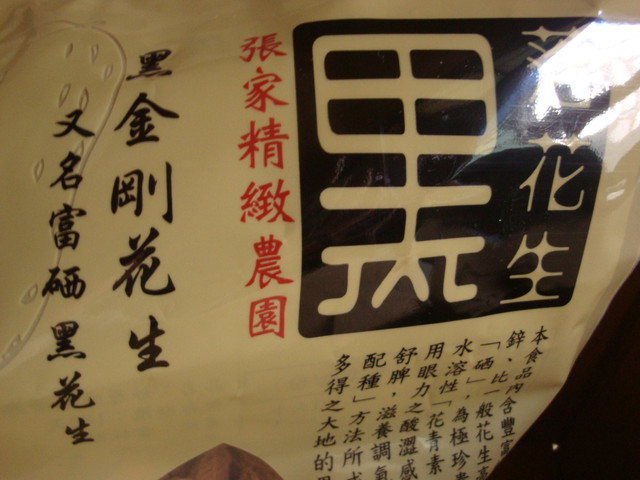 黑
花生
張家精緻農園
黑金剛花生
又名富硒黑花生
本食品內含豐富
鋅、比一般花生高
「硒」，為極珍貴
水溶性「花青素
用眼力之酸澀感
舒脾，滋養調氣
配種」方法所
多得之大地的